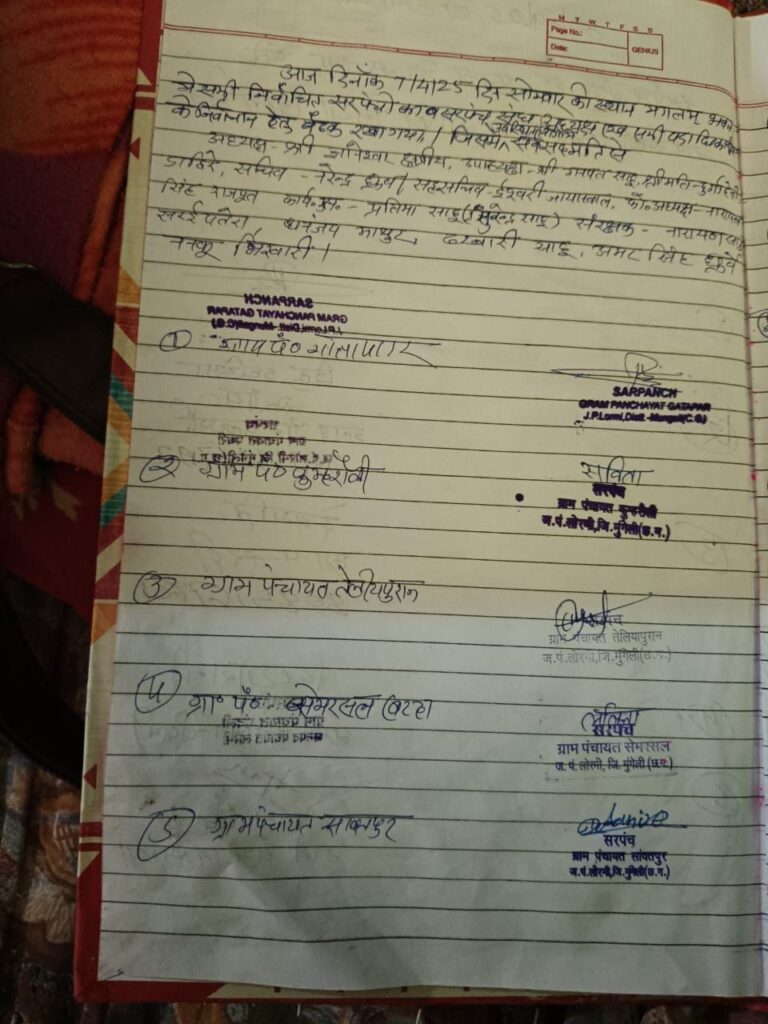 M T W T F S S
Page No.:
Date:
GENIUS
आज दिनाँक 7/4/25 दिन सोमवार को स्थान मंगलम् भवन
में सभी निर्वाचित सरपंचों का सरपंच संघ अध्यक्ष एवं सभी पदाधिकारियों
के निर्वाचन हेतु बैठक रखा गया। जिसमें सर्वसहमति से
अध्यक्ष- श्री उपाध्यक्ष- श्री गनपत साहू, श्रीमति- दुर्गा
डाहिरे, सचिव - नरेन्द्र ध्रुव / सहसचिव- ईश्वरी जायसवाल, अध्यक्ष- नारायण
सिंह राजपूत - प्रतिमा साहू संरक्षक - नारायण
धनंजय माथुर, दरबारी यादव, अमर सिंह
भिखारी।
SARPANCH
GRAM PANCHAYAT GATAPAR
J.P.Lormi,Distt.-Mungeli(C.G.)
① ग्राम पं० गातापार
SARPANCH
GRAM PANCHAYAT GATAPAR
J.P.Lormi,Distt.-Mungeli(C.G.)
② ग्राम पं० कुम्हरौली
सविता
सरपंच
ग्राम पंचायत कुम्हरौली
ज.पं.लोरमी,जि.मुंगेली(छ.ग.)
③ ग्राम पंचायत तेलीयापुरान
सरपंच
ग्राम पंचायत तेलियापुरान
ज.पं.लोरमी,जि.मुंगेली(छ.ग.)
④ ग्रा० पं० सेमरसल
ललिता
सरपंच
ग्राम पंचायत सेमरसल
ज. पं. लोरमी, जि. मुंगेली (छ.ग.)
⑤ ग्राम पंचायत सांवतपुर
सरपंच
ग्राम पंचायत सांवतपुर
ज.पं.लोरमी,जि.मुंगेली(छ.ग.)